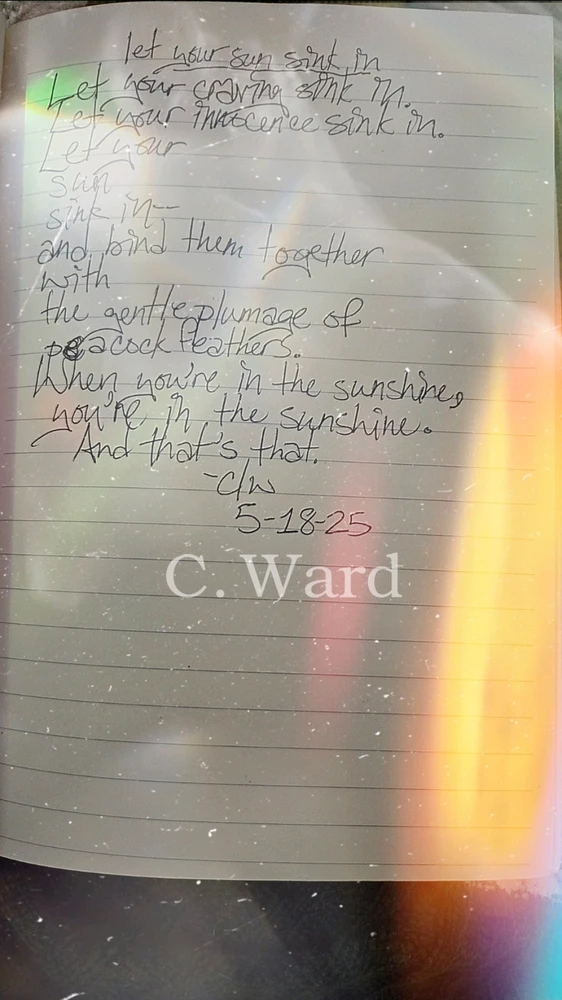 let your sun sink in
Let your craving sink in.
Let your innocence sink in.
Let your
sun
sink in--
and bind them together
with
the gentle plumage of
peacock feathers.
When you're in the sunshine,
you're in the sunshine.
And that's that.
-c/w
5-18-25
C. Ward